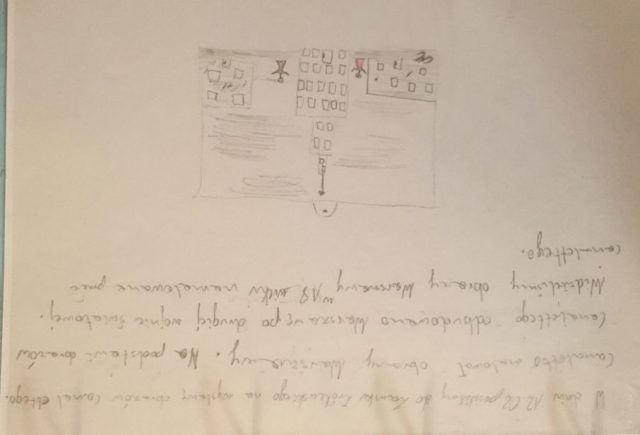 W dniu 12.02 poszliśmy do Zamku Królewskiego na wystawę obrazów Canalettego.
Canaletto malował obrazy Warszawy. Na podstawie obrazów
Canalettego odbudowano Warszawę po drugiej wojnie światowej.
Widzieliśmy obrazy Warszawy w 18 wieku namalowane przez
Canalettego.